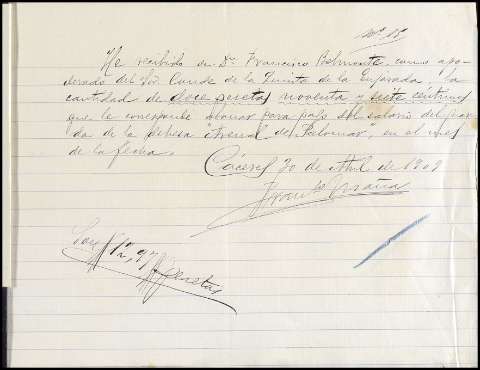 Nº 15
He recibido de Dn. Francisco Belmonte como apo-
derado del Sor. Conde de la Quinta de la Enjarada la
cantidad de doce pesetas noventa y siete céntimos
que le corresponde abonar para pago del salario del guar-
da de la Dehesa "Arenal de Palomar", en el mes
de la fecha.
Cáceres 30 de Abril de 1909
Son 12,97 pesetas